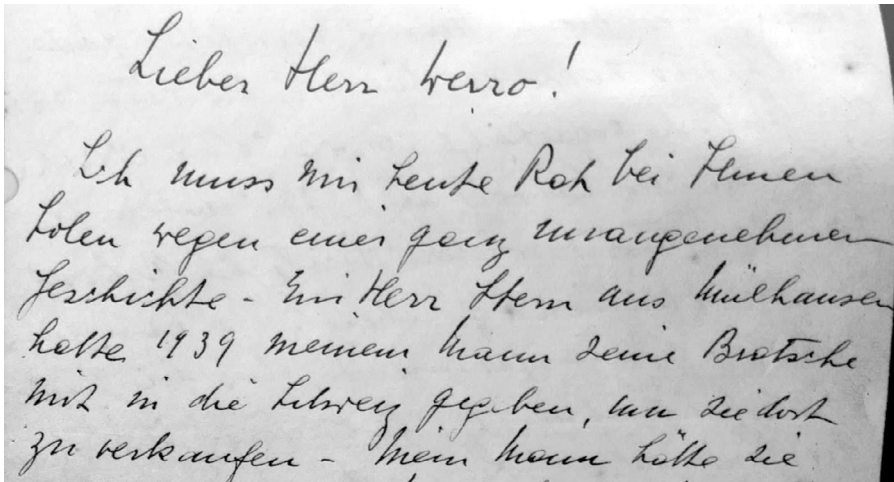 Lieber Herr Werro!
Ich muss mir heute Rat bei Ihnen
holen wegen einer ganz unangenehmen
Geschichte - Ein Herr Stern aus Mülhausen
hatte 1939 meinem Mann seine Bratsche
mit in die Schweiz gegeben, um sie dort
zu verkaufen - Mein Mann hatte sie